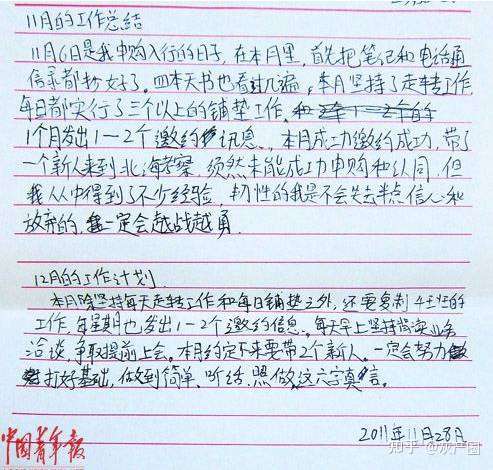 11月的工作总结
11月6日是我申购入行的日子，在本月里，首先把笔记和电话通
信录都抄好了。四本天书也看过几遍，本月坚持了走转工作
每日都实行了三个以上的铺垫工作。
1个月发出1一2个邀约讯息、本月成功邀约成功，带了
一个新人来到北海考察，须然未能成功申购和认同，但
我从中得到了不少经验，韧性的我是不会失去半点信心和
放弃的，我一定会越战越勇
12月的工作计划
本月除坚持每天走转工作和每日铺垫之外，还要复制4生性的
工作，每星期也发出1一2个邀约信息。每天早上坚持业务
洽谈，争取提前上会。本月约定下来要带2个新人。一定会努力做
打好基础，做到简单、听话、照做，这六字真言。
2011年11月28日
中国青年报
知乎 @众户团